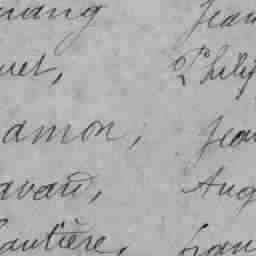 uang Jean
uet, Phili
amon, Jea
avau, Aug
autière, Fran